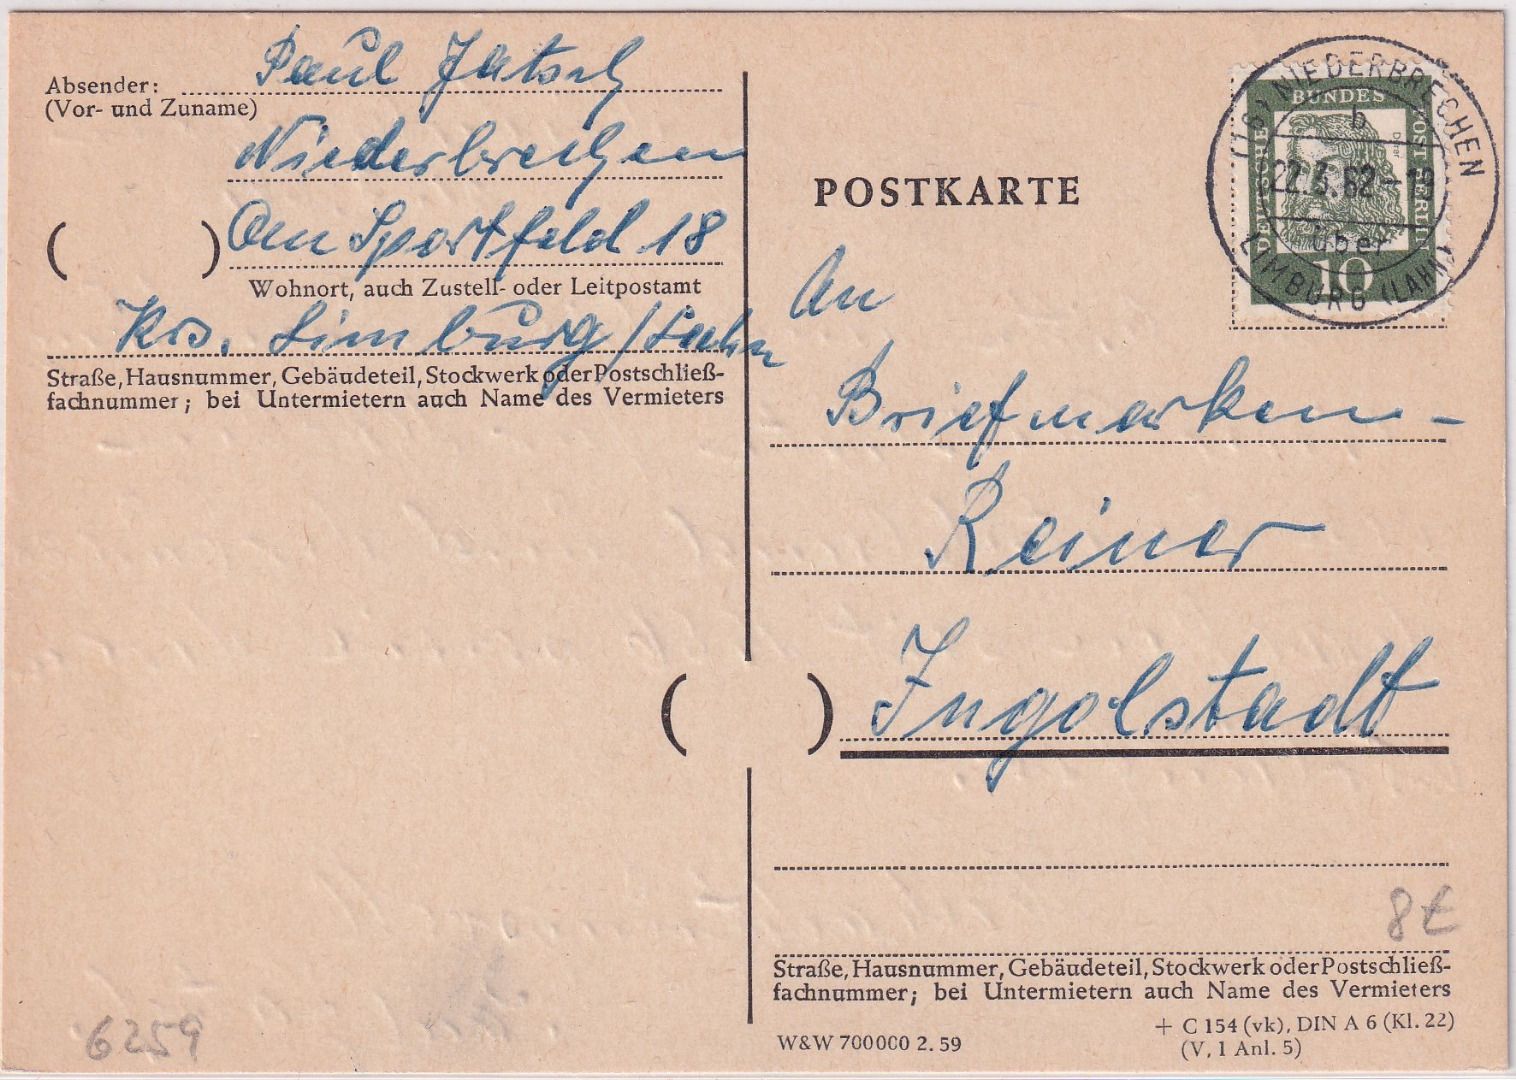 Absender: Paul Jatsch
(Vor- und Zuname)
Niederbrechen
( ) Am Sportfeld 18
Wohnort, auch Zustell- oder Leitpostamt
Krs. Limburg/Lahn
Straße, Hausnummer, Gebäudeteil, Stockwerk oder Postschließ-
fachnummer; bei Untermietern auch Name des Vermieters
POSTKARTE
DEUTSCHE BUNDES POST BERLIN
Dürer
10
(16) NIEDERBRECHEN
b
22.3.62.-19
über
LIMBURG (LAHN)
An
Briefmarken-
Reiner
( ) Ingolstadt
8€
Straße, Hausnummer, Gebäudeteil, Stockwerk oder Postschließ-
fachnummer; bei Untermietern auch Name des Vermieters
W&W 700000 2.59
+ C 154 (vk), DIN A 6 (Kl. 22)
(V, 1 Anl. 5)
6259